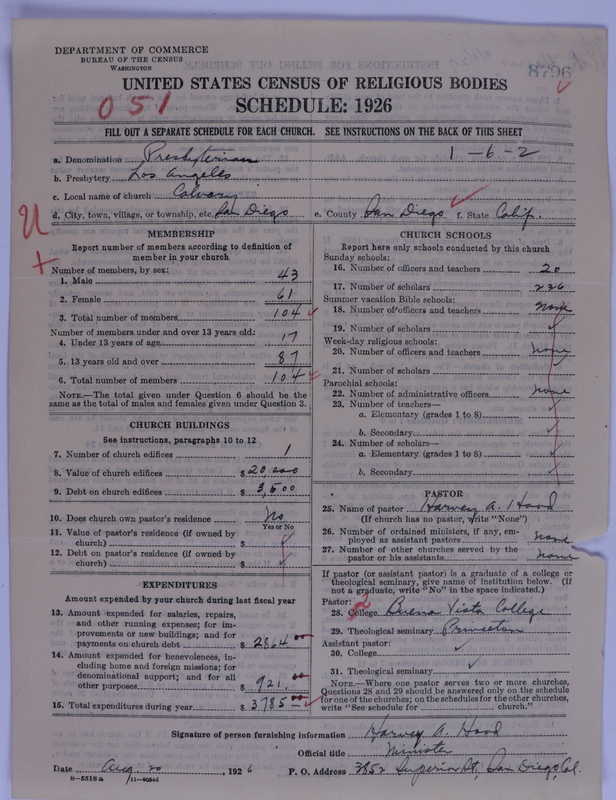 DEPARTMENT OF COMMERCE
BUREAU OF THE CENSUS
WASHINGTON
8796
UNITED STATES CENSUS OF RELIGIOUS BODIES
051
SCHEDULE: 1926
FILL OUT A SEPARATE SCHEDULE FOR EACH CHURCH. SEE INSTRUCTIONS ON THE BACK OF THIS SHEET
a. Denomination Presbyterian 1-6-2
b. Presbytery Los Angeles
c. Local name of church Calvary
d. City, town, village, or township, etc. San Diego e. County San Diego f. State Calif.
U
+
MEMBERSHIP
Report number of members according to definition of member in your church
Number of members, by sex:
1. Male 43
2. Female 61
3. Total number of members 104
Number of members under and over 13 years old:
4. Under 13 years of age 17
5. 13 years old and over 87
6. Total number of members 104
NOTE.—The total given under Question 6 should be the
same as the total of males and females given under Question 3.
CHURCH BUILDINGS
See instructions, paragraphs 10 to 12
7. Number of church edifices 1
8. Value of church edifices $20,000
9. Debt on church edifices $3,500
10. Does church own pastor's residence No
Yes or No
11. Value of pastor's residence (if owned by
church) $
12. Debt on pastor's residence (if owned by
church) $
EXPENDITURES
Amount expended by your church during last fiscal year
13. Amount expended for salaries, repairs,
and other running expenses; for im-
provements or new buildings; and for
payments on church debt $2864.00
14. Amount expended for benevolences, in-
cluding home and foreign missions; for
denominational support; and for all
other purposes $921.00
15. Total expenditures during year $3785
CHURCH SCHOOLS
Report here only schools conducted by this church
Sunday schools:
16. Number of officers and teachers 20
17. Number of scholars 226
Summer vacation Bible schools:
18. Number of officers and teachers none
19. Number of scholars
Week-day religious schools:
20. Number of officers and teachers none
21. Number of scholars
Parochial schools:
22. Number of administrative officers none
23. Number of teachers—
a. Elementary (grades 1 to 8)
b. Secondary
24. Number of scholars—
a. Elementary (grades 1 to 8)
b. Secondary
PASTOR
25. Name of pastor Harvey A. Hood
(If church has no pastor, write "None")
26. Number of ordained ministers, if any, em-
ployed as assistant pastors none
27. Number of other churches served by the
pastor or his assistants none
If pastor (or assistant pastor) is a graduate of a college or
theological seminary, give name of institution below. (If
not a graduate, write "No" in the space indicated.)
Pastor: 2
28. College Buena Vista College
29. Theological seminary Princeton
Assistant pastor:
30. College
31. Theological seminary
NOTE.—Where one pastor serves two or more churches,
Questions 28 and 29 should be answered only on the schedule
for one of the churches; on the schedules for the other churches,
write "See schedule for ______ church."
Signature of person furnishing information Harvey A. Hood
Official title Minister
Date Aug. 20, 1926 P. O. Address 3852 Superior St., San Diego, Cal.
8-5518a